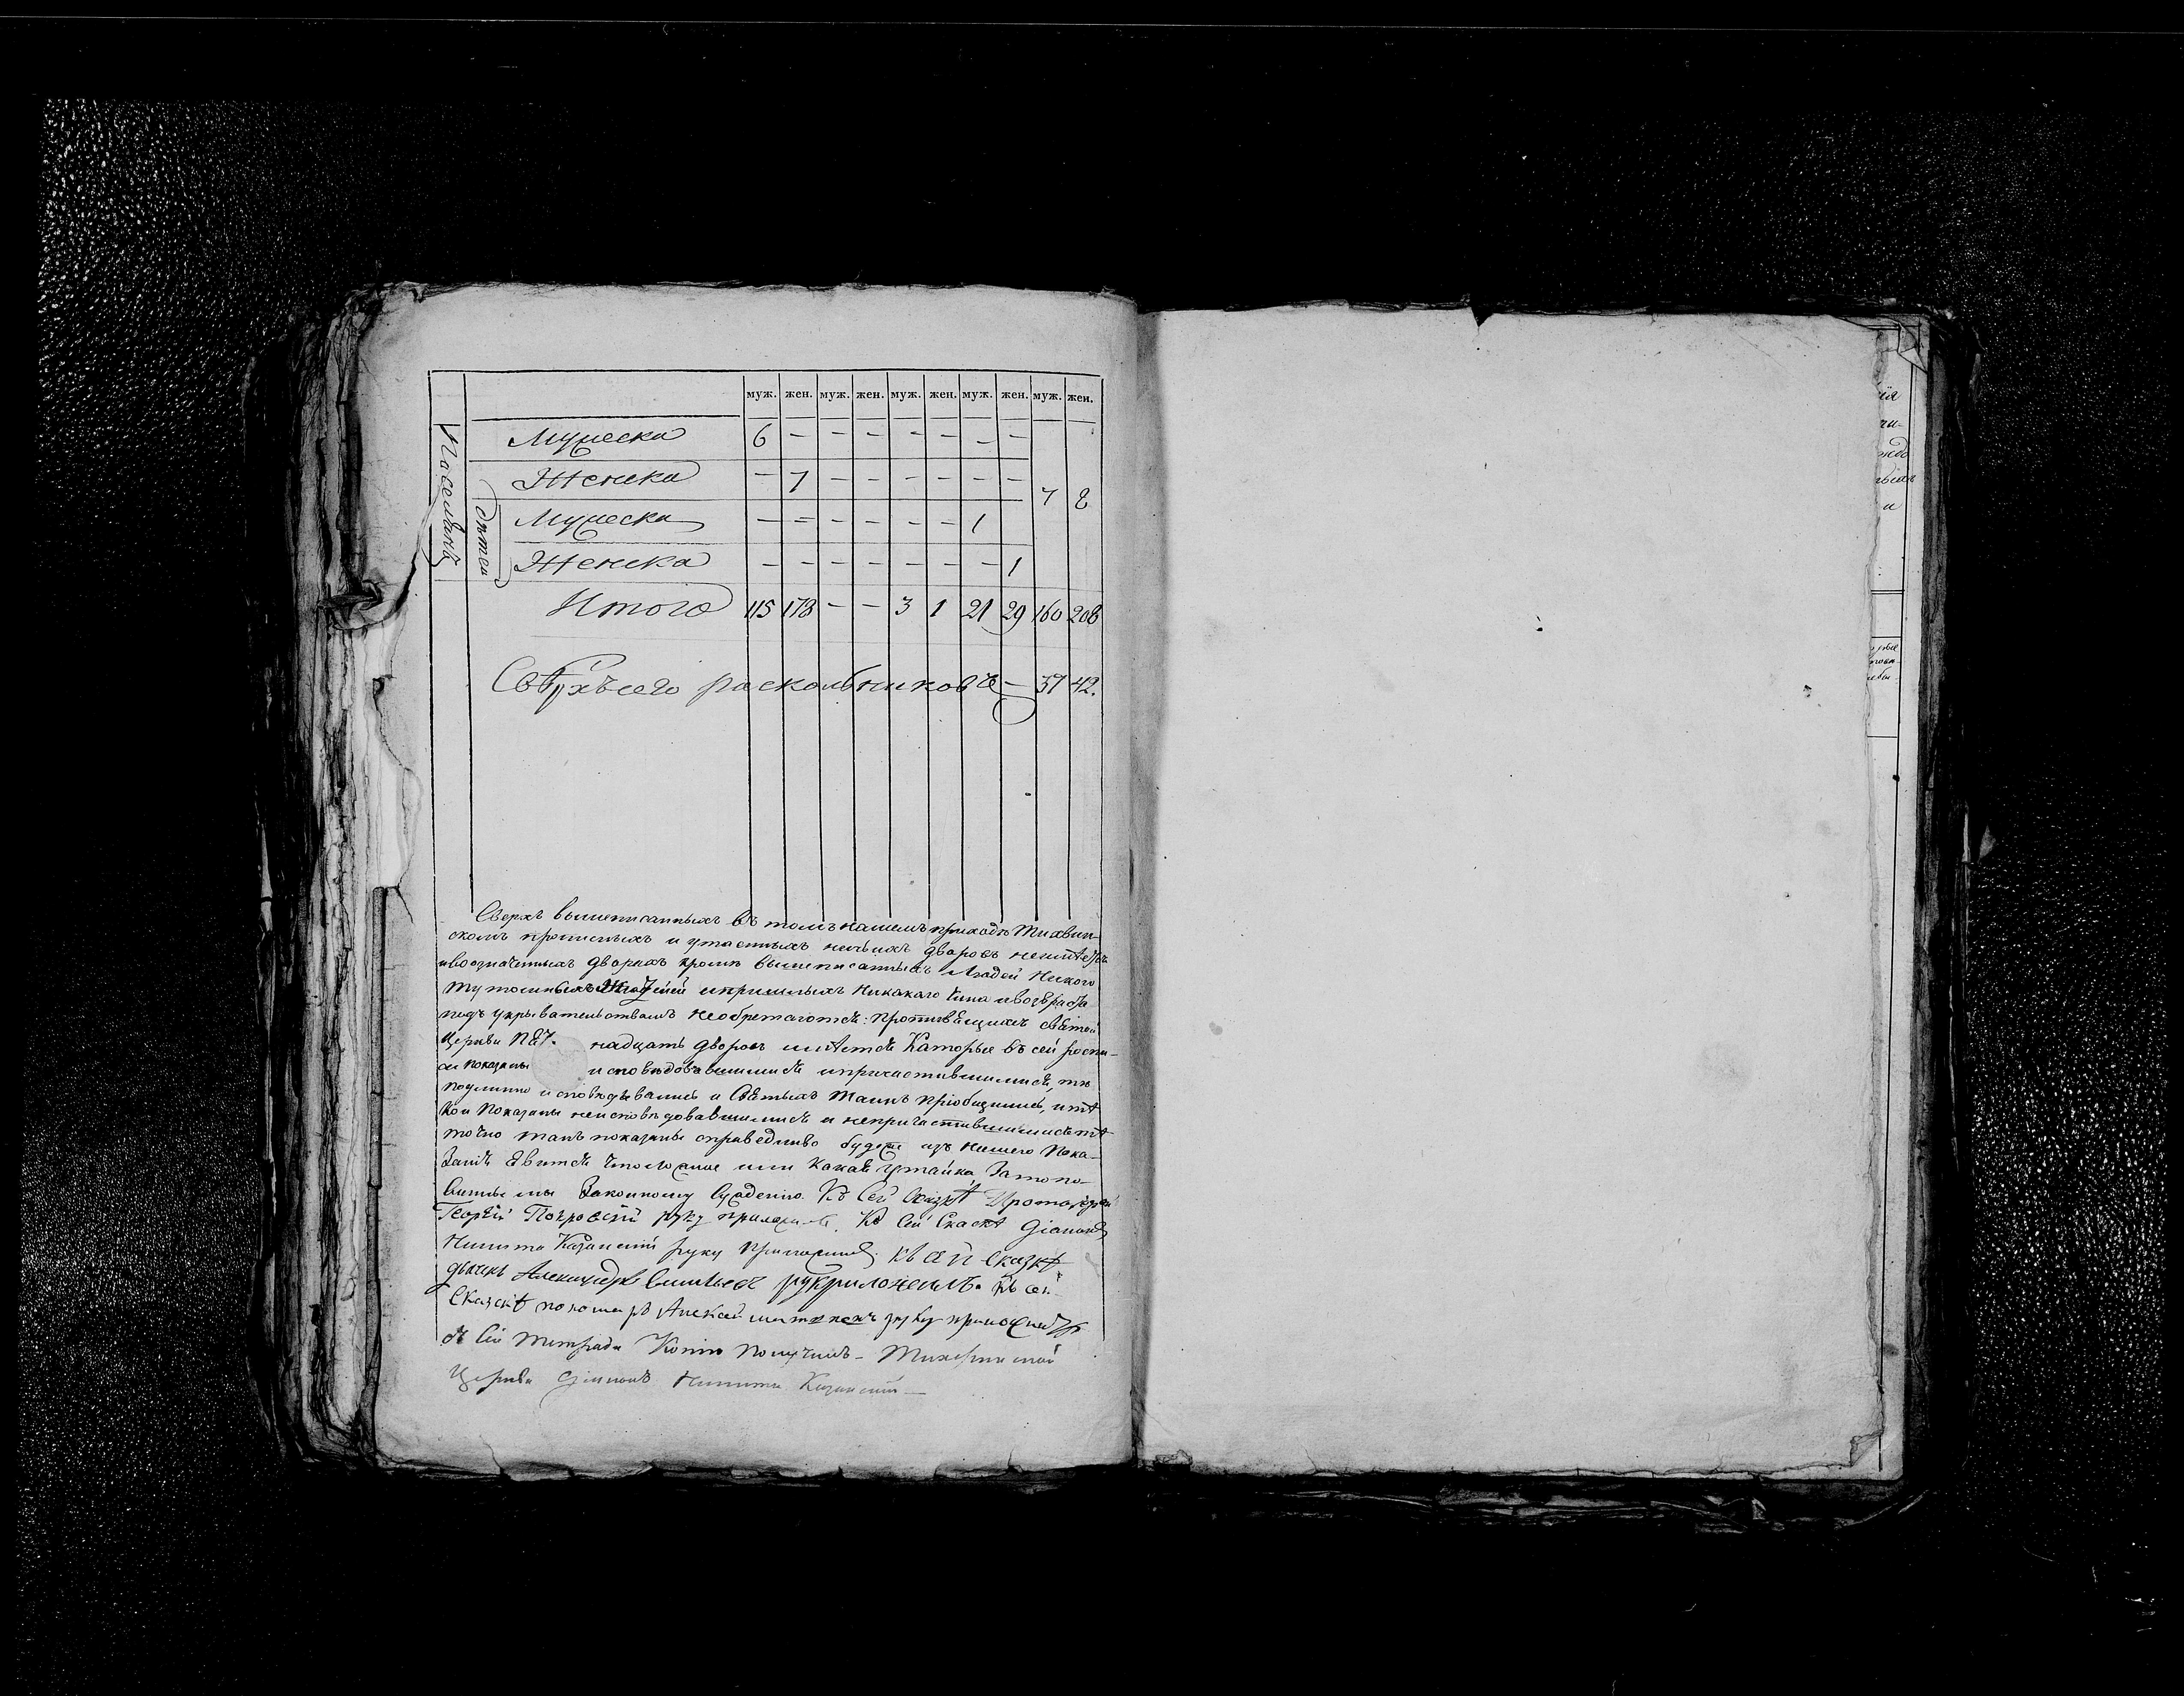 муж. жен. муж. жен. муж. жен. муж. жен. муж. жен.
Мужеска 6 — — — — — — —
Женска — 7 — — — — — — 7 8
Дѣтей
Мужеска — — — — — — 1
Женска — — — — — — — 1
Итого 115 178 — — 3 1 21 29 160 208
Сверхъ сего раскольниковъ — 37 42.
Сверхъ вышеписанныхъ въ томъ нашемъ приходѣ Тихвин-
скомъ прописныхъ и утаенныхъ ничьихъ дворовъ неимѣется
ивоозначенныхъ дворахъ кромѣ вышеписанныхъ Людей Никого
тутошныхъ жителей ипришлыхъ Никакаго Чина ивозраста
подъ укрывательствомъ необретается: противящихся святой
Церкви надцать дворовъ имѣется Каторые въ сей роспи-
си показаны исповѣдовавшимися ипричастившимися, тѣ
подлинно исповѣдывались и Святыхъ Таинъ пріобщились, итѣ
Кои Показаны неисповѣдовавшимися и непричастившимися тѣ
точно такъ показаны справедливо будетъ изъ нашего Пока-
занія явится что ложное или Какая утайка, Зато по-
винны мы Законному Сужденію. Къ Сей Сказкѣ Протоіерей
Георгій Покровскій руку приложилъ. Къ Сей Сказкѣ Діаконъ
Никита Казанскій руку приложилъ. Къ сей сказкѣ
дьячекъ Александръ руку приложилъ. Къ сей
Сказкѣ пономарь Алексей руку приложилъ
съ Сей тетради Копію Получилъ — Тихвинской
Церкви Діаконъ Никита Казанскій —